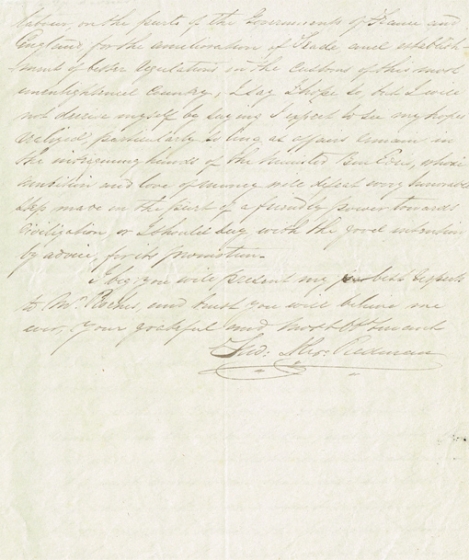 labour, on the parts of the Governments of France and
England, for the amelioration of Trade and establish
-ment of better regulations in the Customs of this most
unenlightened Country, I say I hope so, but I will
not deceive myself by saying I expect to see my hopes
realized, particularly so long as affairs remain in
the intriguing hands of the Minister whose
ambition and love of money will defeat every
step made on the part of a friendly power towards
Civilization, or I should say with the good intention
by advice, for its promotion.
I beg you will present my best respects
to Mr. and trust you will believe me
ever, Your grateful and most Obt. Servant
Redman